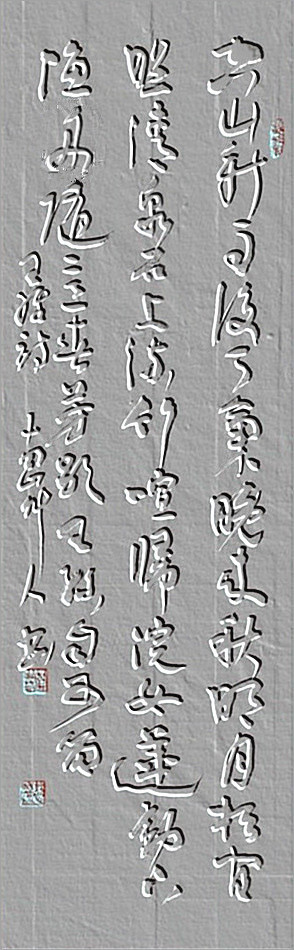 空山新雨後天氣晚來秋明月松間
照清泉石上流竹喧歸浣女蓮動下
漁舟隨意春芳歇王孫自可留
王維詩 人书